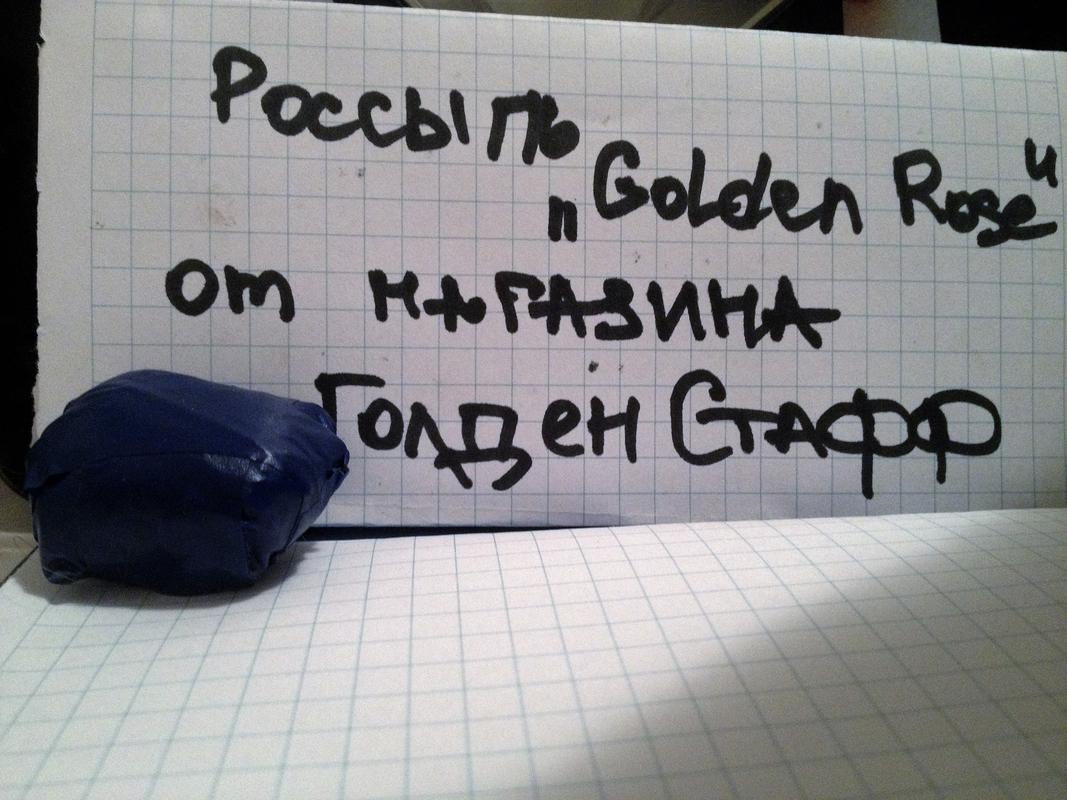 Россыпь
„Golden Rose“
от магазина
Голден Стафф